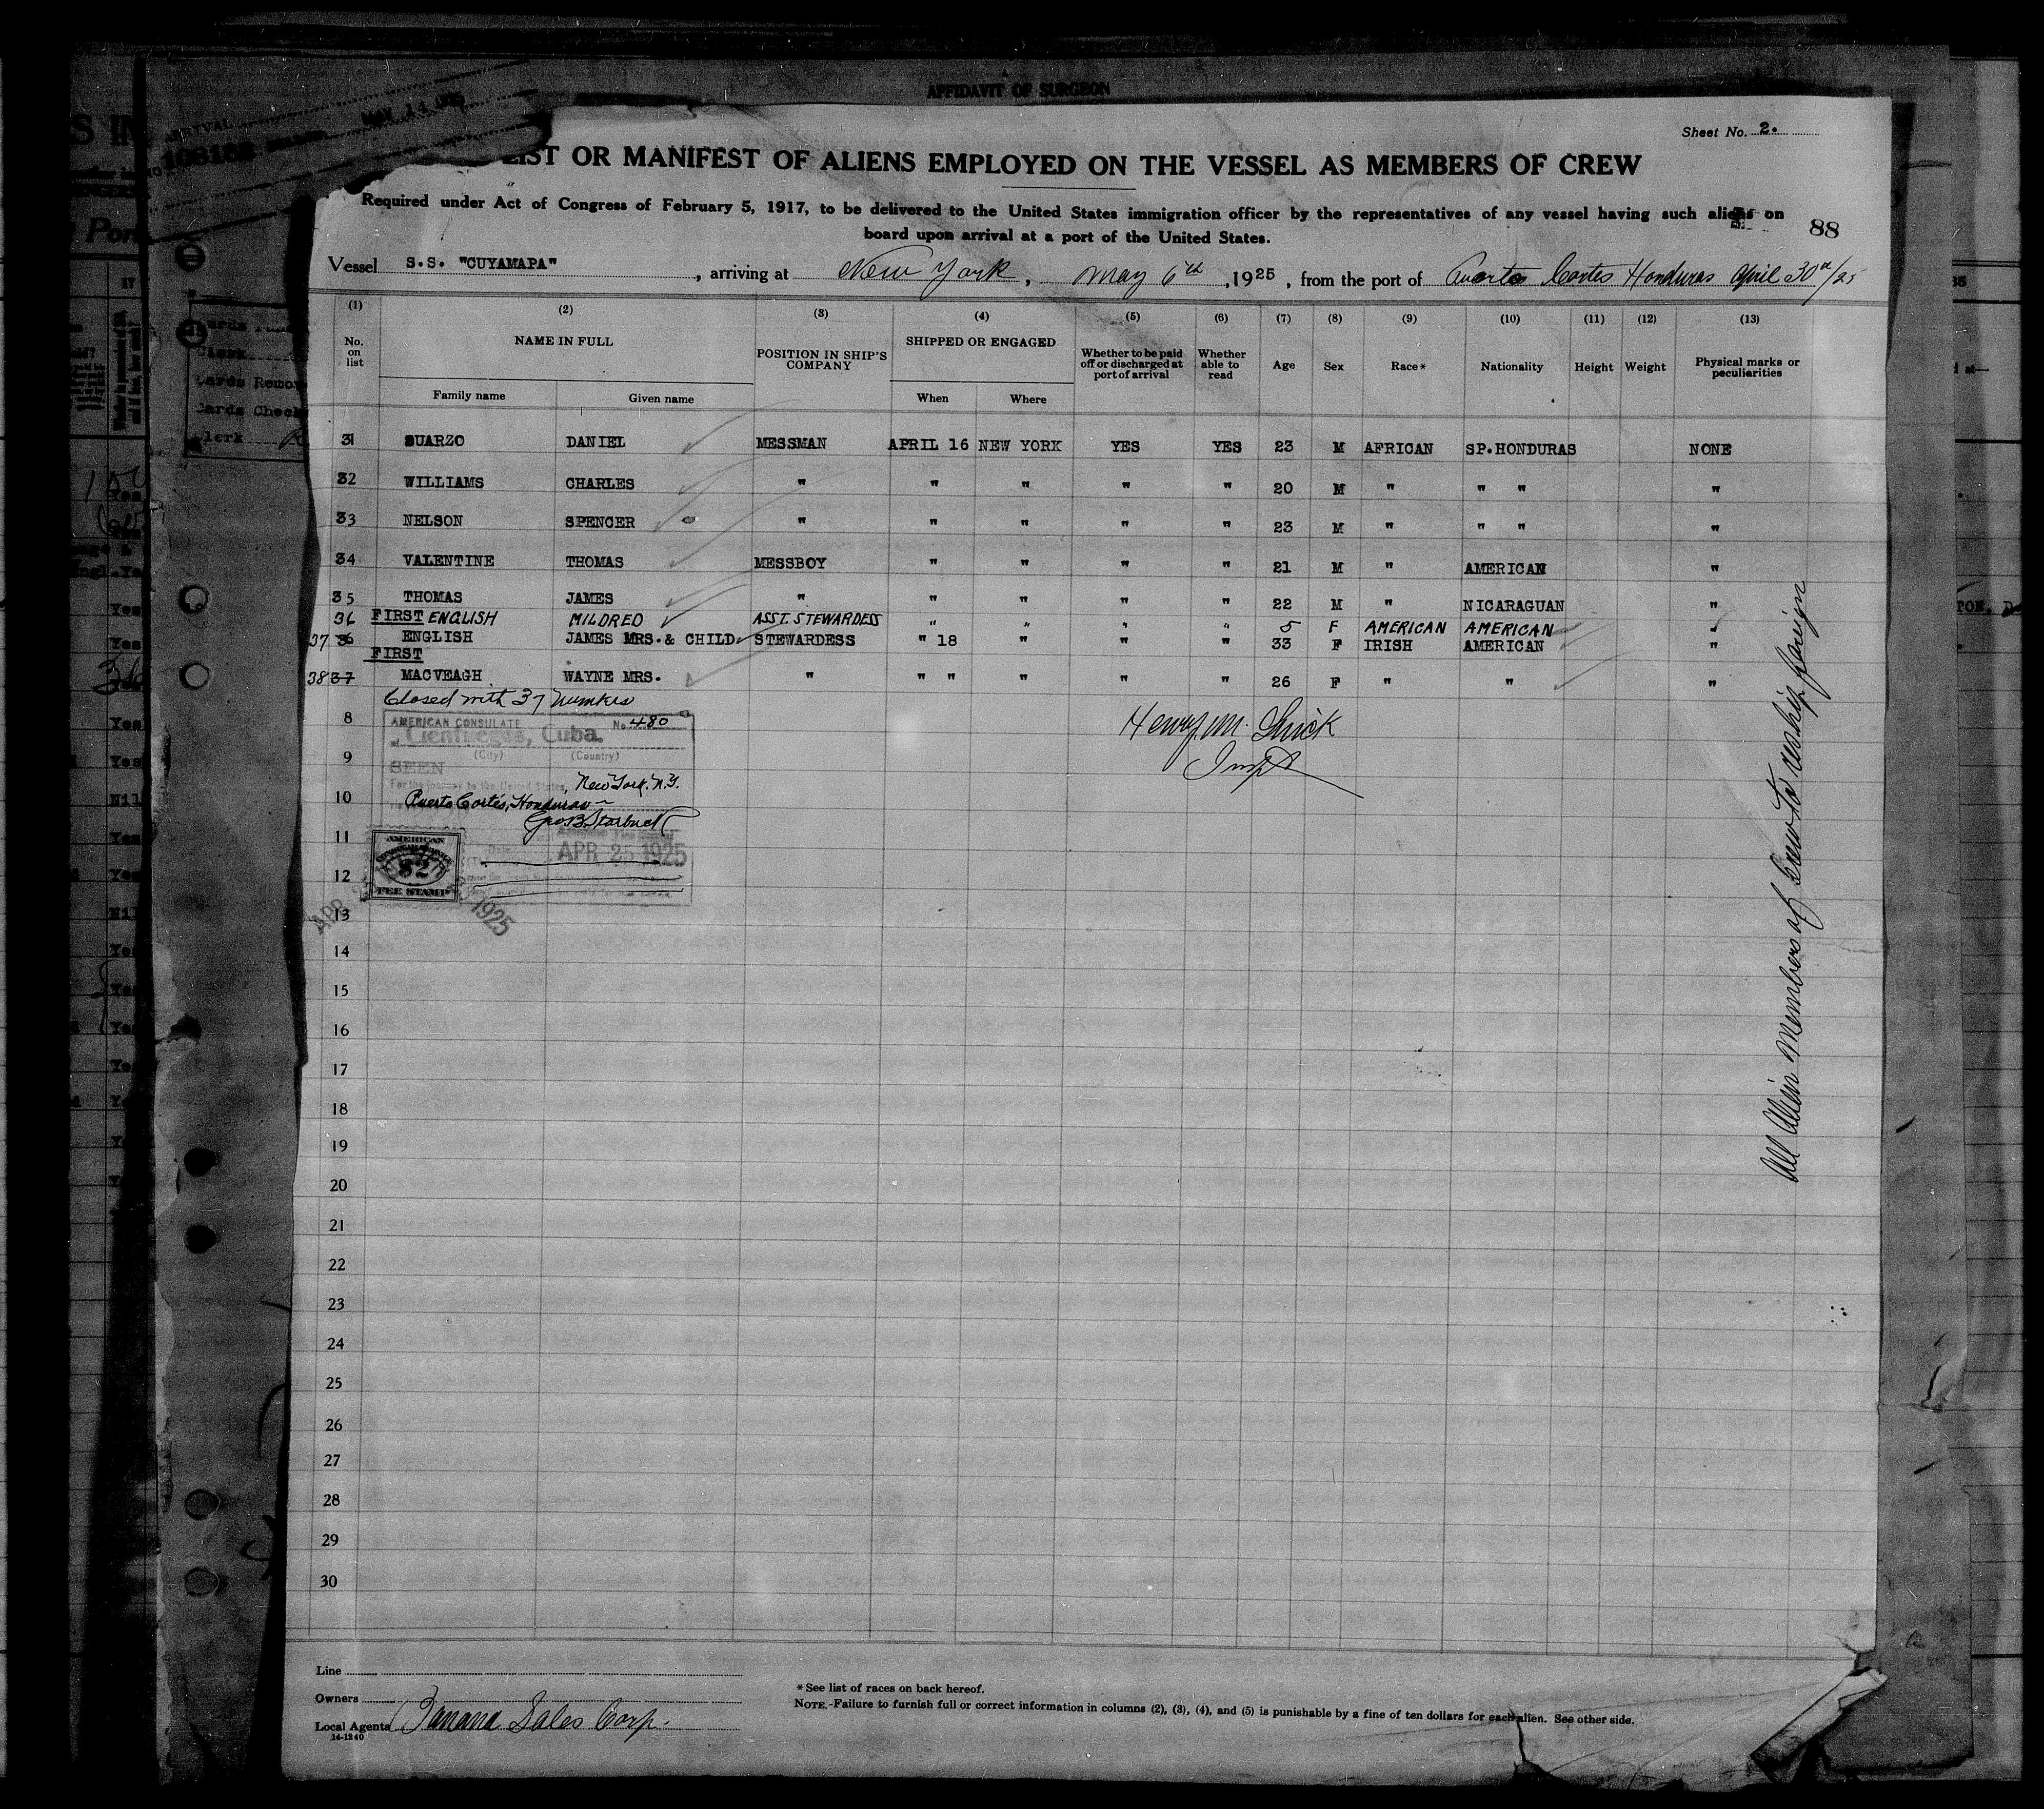 AFFIDAVIT OF SURGEON
ARRIVAL
MAY 14 1925
108182
Sheet No. 2.
LIST OR MANIFEST OF ALIENS EMPLOYED ON THE VESSEL AS MEMBERS OF CREW
Required under Act of Congress of February 5, 1917, to be delivered to the United States immigration officer by the representatives of any vessel having such aliens on
board upon arrival at a port of the United States.
88
Vessel S.S. "CUYAMAPA", arriving at New York, May 6th, 1925, from the port of Puerto Cortes Honduras April 30th/25
(1) (2) (3) (4) (5) (6) (7) (8) (9) (10) (11) (12) (13)
No. on list NAME IN FULL POSITION IN SHIP'S COMPANY SHIPPED OR ENGAGED Whether to be paid off or discharged at port of arrival Whether able to read Age Sex Race* Nationality Height Weight Physical marks or peculiarities
Family name Given name When Where
31 SUARZO DANIEL MESSMAN APRIL 16 NEW YORK YES YES 23 M AFRICAN SP.HONDURAS NONE
32 WILLIAMS CHARLES " " " " " 20 M " " " "
33 NELSON SPENCER " " " " " 23 M " " " "
34 VALENTINE THOMAS MESSBOY " " " " 21 M " AMERICAN "
35 THOMAS JAMES " " " " " 22 M " NICARAGUAN "
36 FIRST ENGLISH MILDRED ASST. STEWARDESS " " " " 5 F AMERICAN AMERICAN "
37 36 ENGLISH JAMES MRS. & CHILD STEWARDESS " 18 " " " 33 F IRISH AMERICAN "
FIRST
38 37 MACVEAGH WAYNE MRS. " " " " " " 26 F " " "
Closed with 37 numbers
8
AMERICAN CONSULATE No. 480
Cienfuegos, Cuba.
(City) (Country)
9
SEEN
For the journey to the United States, New York. N.Y.
10
Puerto Cortés, Honduras
Geo. B. Starbuck
11
APR 25 1925
AMERICAN
CONSULAR SERVICE
$2
FEE STAMP
12
APR 1925
13
14
15
16
17
18
19
20
21
22
23
24
25
26
27
28
29
30
Henry M.
Inspt
All Alien Members of Crew to reship foreign
Line
Owners
Local Agents Banana Sales Corp.
14-1240
* See list of races on back hereof.
NOTE.-Failure to furnish full or correct information in columns (2), (3), (4), and (5) is punishable by a fine of ten dollars for each alien. See other side.